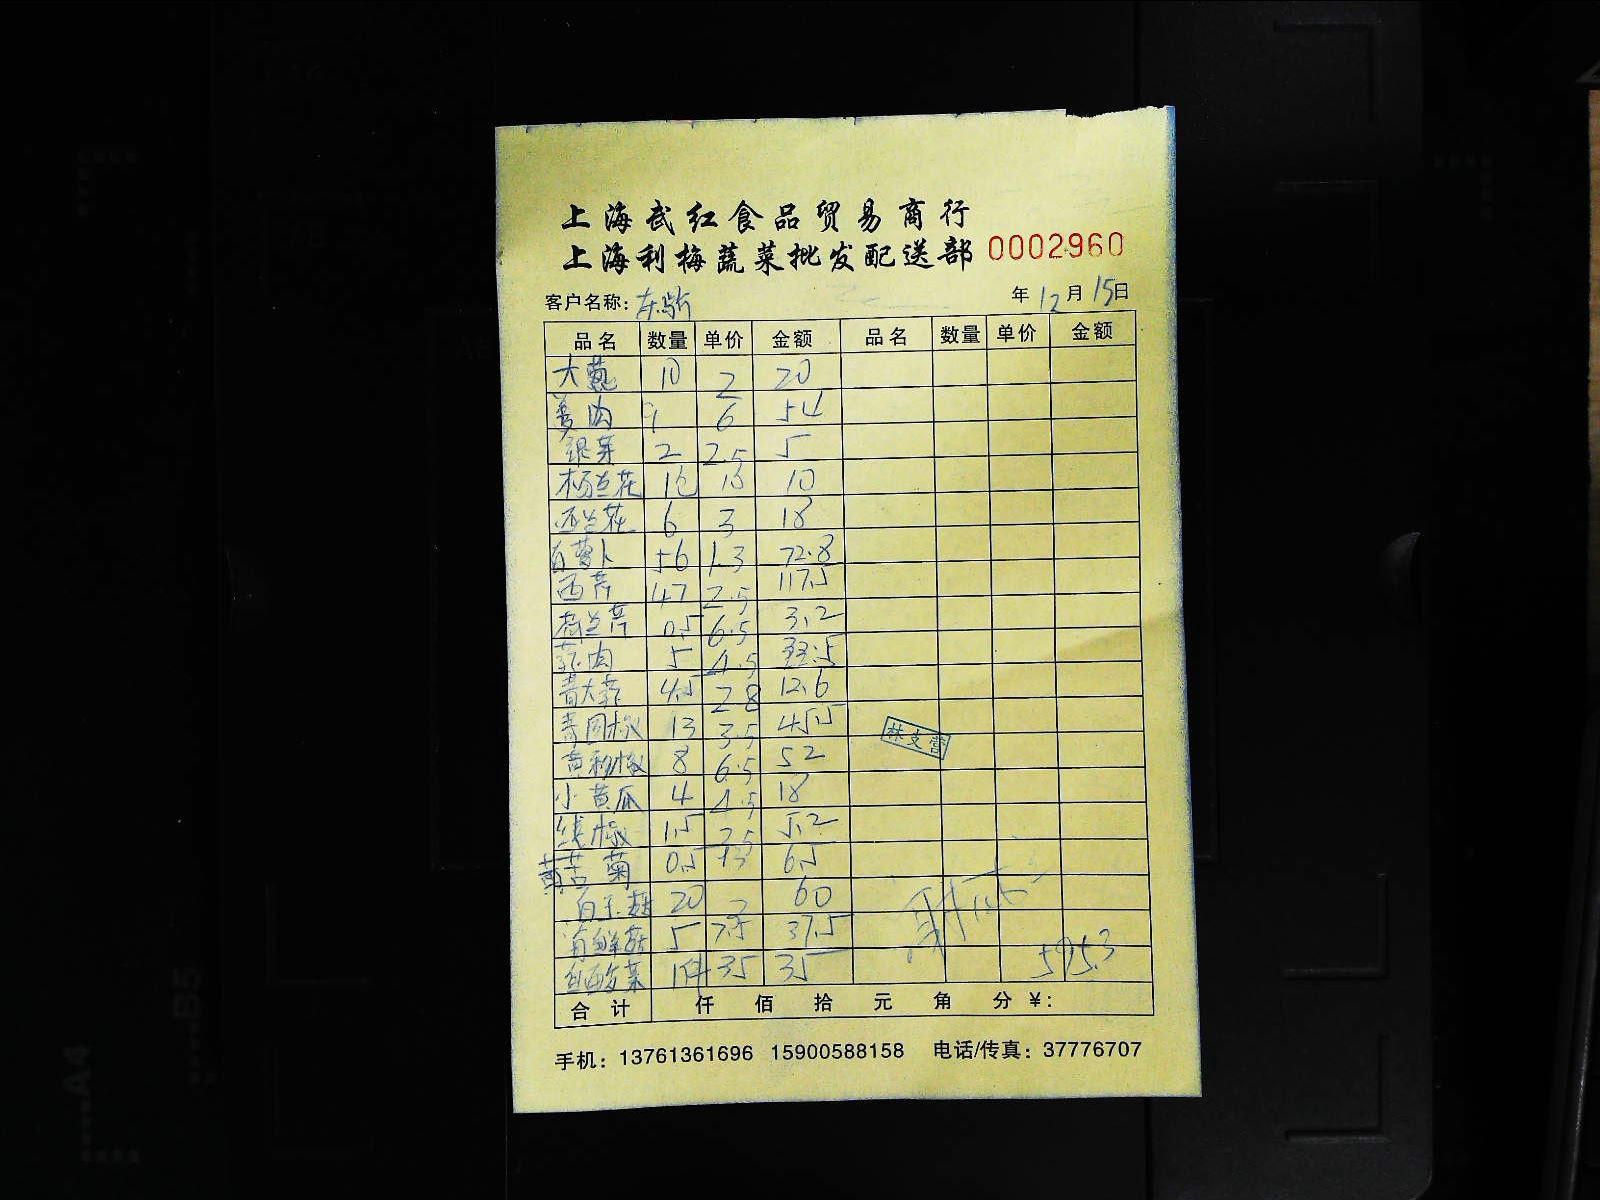 上海武红食品贸易商行
上海利梅蔬菜批发配送部 0002960
客户名称: 年 12 月 15 日
品名 数量 单价 金额 品名 数量 单价 金额
大葱 10 2 20
姜肉 9 6 54
银芽 2 2.5 5
杨兰花 10
西兰花 6 3 18
白萝卜 56 1.3 72.8
西芹 47 2.5 117.5
荷兰芹 0.5 6.5 3.2
蒜肉 5 4.5
青大蒜 4.5 2.8 12.6
青圆椒 13 3.5 45.5
黄彩椒 8 6.5 52
小黄瓜 4 4.5 18
线椒 1.5 3.5 5.2
苦菊 0.5 13 6.5
白玉菇 20 3 60
海鲜菇 5 7.5 37.5
酸菜 1件 35 35
595.3
合计 仟 佰 拾 元 角 分 ¥:
手机: 13761361696 15900588158 电话/传真: 37776707